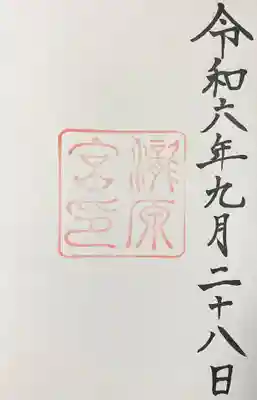 令和六年九月二十八日
瀧原
宮印